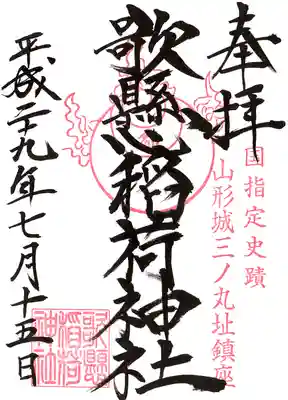 奉拝
国指定史蹟
山形城三ノ丸址鎮座
歌懸稲荷神社
平成二十九年七月十五日
歌懸
稲荷
神社